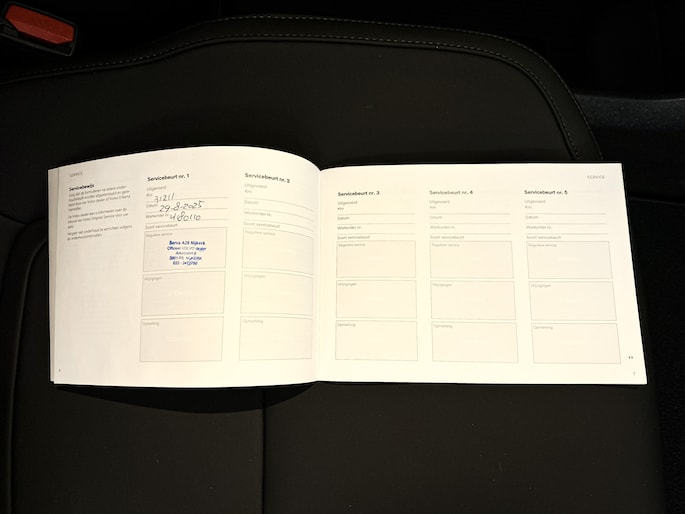 SERVICE
Servicebewijs
Servicebeurt nr. 1
Uitgevoerd
Km: 31211
Datum 29-8-2025
Werkorder nr. 480110
Soort servicebeurt
Reguliere service
Berva A28 Nijkerk
Wijzigingen
Opmerking
Servicebeurt nr. 2
Uitgevoerd
Km:
Datum
Werkorder nr.
Soort servicebeurt
Reguliere service
Wijzigingen
Opmerking
SERVICE
Servicebeurt nr. 3
Uitgevoerd
Km:
Datum
Werkorder nr.
Soort servicebeurt
Reguliere service
Wijzigingen
Opmerking
Servicebeurt nr. 4
Uitgevoerd
Km:
Datum
Werkorder nr.
Soort servicebeurt
Reguliere service
Wijzigingen
Opmerking
Servicebeurt nr. 5
Uitgevoerd
Km:
Datum
Werkorder nr.
Soort servicebeurt
Reguliere service
Wijzigingen
Opmerking